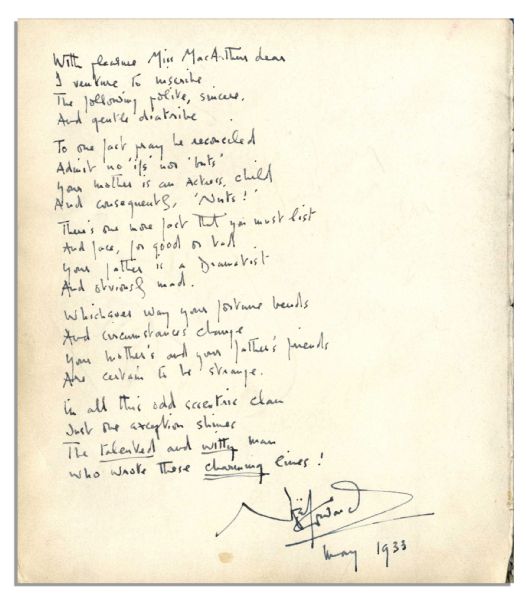 With pleasure Miss MacArthur dear
I venture to inscribe
The following polite, sincere,
And gentle diatribe
To one fact pray be reconciled
Admit no 'ifs' nor 'buts'
Your mother is an Actress, child
And consequently, 'Nuts!'
There's one more fact that you must list
And face, for good or bad
Your father is a Dramatist
And obviously mad.
Whichever way your fortune bends
And circumstances change
Your mother's and your father's friends
Are certain to be strange.
In all this odd eccentric clan
Just one exception shines
The talented and witty man
Who wrote these charming lines!
Noël Coward
May 1933